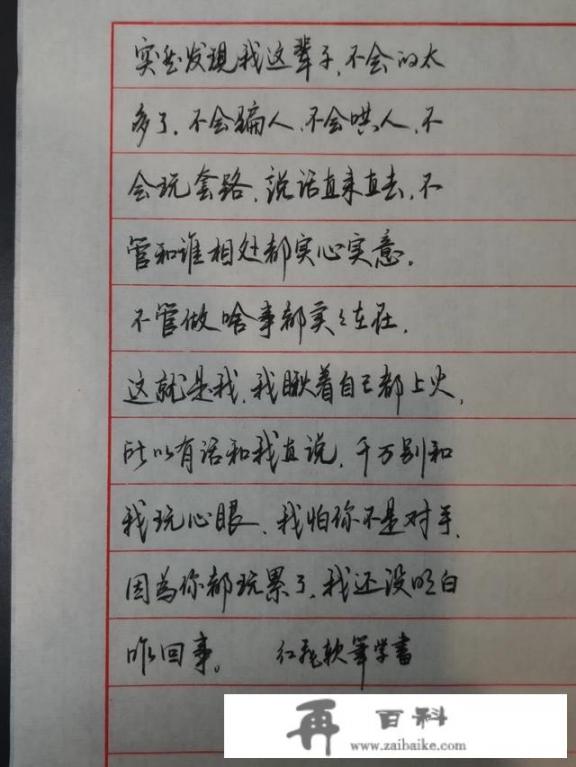 突然发现我这辈子,不会的太
多了,不会骗人,不会哄人,不
会玩套路,说话直来直去,不
管和谁相处都实心实意。
不管做啥事都实々在在,
这就是我,我瞅着自己都上火,
所以有话和我直说,千万别和
我玩心眼,我怕你不是对手,
因为你都玩累了,我还没明白
咋回事。 红 软笔学书
再 百科
www.zaibaike.com